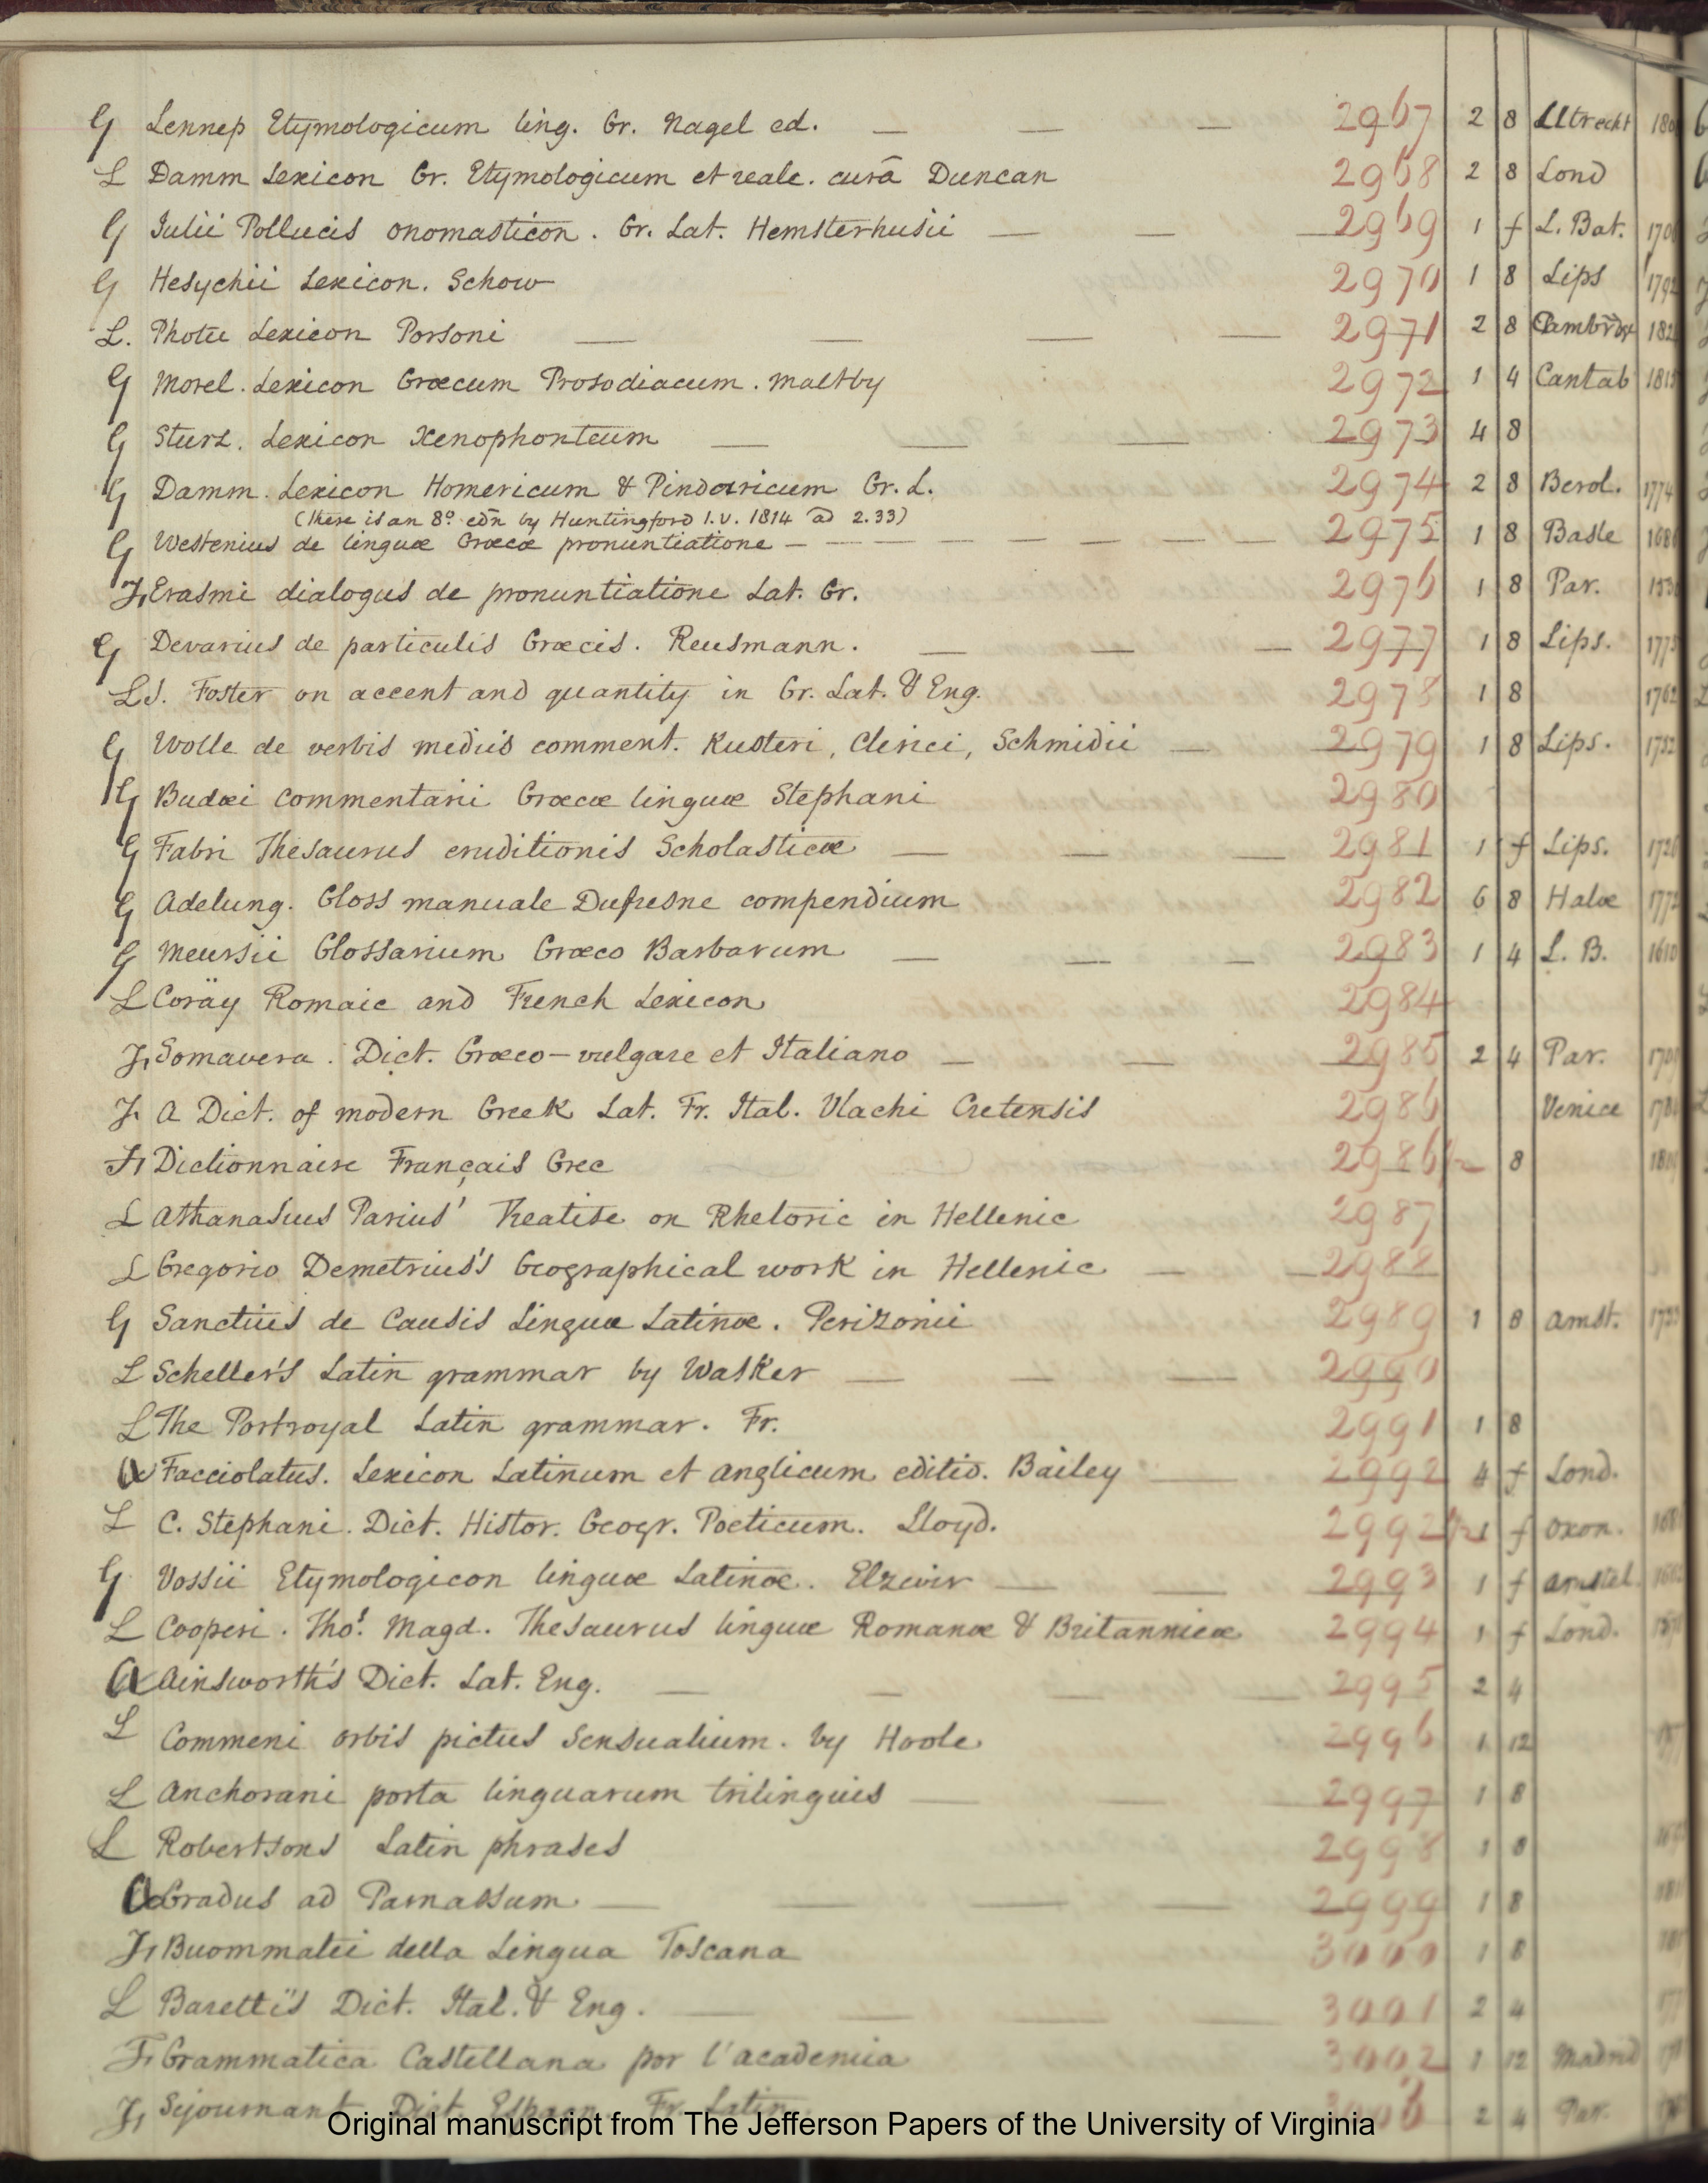 G Lennep Etymologicum ling. Gr. Nagel ed. — — — 2967 2 8 Utrecht
L Damm Lexicon Gr. Etymologicum et reale. curâ Duncan 2968 2 8 Lond
G Julii Pollucis onomasticon. Gr. Lat. Hemsterhusii — — — 2969 1 f L. Bat.
G Hesychii Lexicon. Schow 2970 1 8 Lips 1792
L. Photii Lexicon Porsoni — — — — 2971 2 8
G Morel. Lexicon Græcum Prosodiacum. Maltby 2972 1 4 Cantab 1815
G Sturz. Lexicon Xenophonteum — — — 2973 4 8
G Damm. Lexicon Homericum & Pindaricum Gr. L. 2974 2 8 Berol. 1774
(there is an 8º edn by Huntingford 1.v. 1814 ad 2.33)
G Westenius de linguæ Græcæ pronuntiatione — — — — — — — 2975 1 8 Basle 1686
F. Erasmi dialogus de pronuntiatione Lat. Gr. 2976 1 8 Par.
G Devarius de particulis Græcis. Reusmann. — — — 2977 1 8 Lips. 1775
L J. Foster on accent and quantity in Gr. Lat. & Eng. 2978 1 8 1762
G Wolle de verbis mediis comment. Kusteri, Clerici, Schmidii — — 2979 1 8 Lips. 1752
G Budæi Commentarii Græcæ linguæ Stephani 2980
G Fabri Thesaurus eruditionis Scholasticæ — — — 2981 1 f Lips. 1726
G Adelung. Gloss manuale Dufresne compendium 2982 6 8 Halæ 1772
G Meursii Glossarium Græco Barbarum — — — 2983 1 4 L. B. 1610
L Coräy Romaic and French Lexicon 2984
F. Somavera. Dict. Græco-vulgare et Italiano — — — 2985 2 4 Par.
F. A Dict. of modern Greek Lat. Fr. Ital. Vlachi Cretensis 2986 Venice 1784
F. Dictionnaire Français Grec 2986½ 8
L Athanasius Parius' Treatise on Rhetoric in Hellenic 2987
L Gregorio Demetrius's Geographical work in Hellenic — — 2988
G Sanctius de Causis Linguæ Latinæ. Perizonii 2989 1 8 Amst. 1733
L Scheller's Latin grammar by Walker — — — 2990
L The Portroyal Latin grammar. Fr. 2991 1 8
a Facciolatus. Lexicon Latinum et Anglicum editio. Bailey — 2992 4 f Lond.
L C. Stephani. Dict. Histor. Geogr. Poeticum. Lloyd. 2992½ 1 f Oxon.
G Vossii Etymologicon linguæ Latinæ. Elzevir — — — 2993 1 f Amstel.
L Cooperi. Thos. Magd. Thesaurus linguæ Romanæ & Britannicæ 2994 1 f Lond.
a Ainsworth's Dict. Lat. Eng. — — — — 2995 2 4
L Commeni orbis pictus Sensualium. by Hoole 2996 1 12
L Anchorani porta linguarum trilinguis — — — 2997 1 8
L Robertsons Latin phrases 2998 1 8
a Gradus ad Parnassum — — — — 2999 1 8
F. Buommatei della Lingua Toscana 3000 1 8
L Baretti's Dict. Ital. & Eng. — — — — 3001 2 4
F. Grammatica Castellana por l'academia 3002 1 12 Madrid
F. Sejournant Dict. Espagn. Fr. Latin 2 4 Par.
Original manuscript from The Jefferson Papers of the University of Virginia